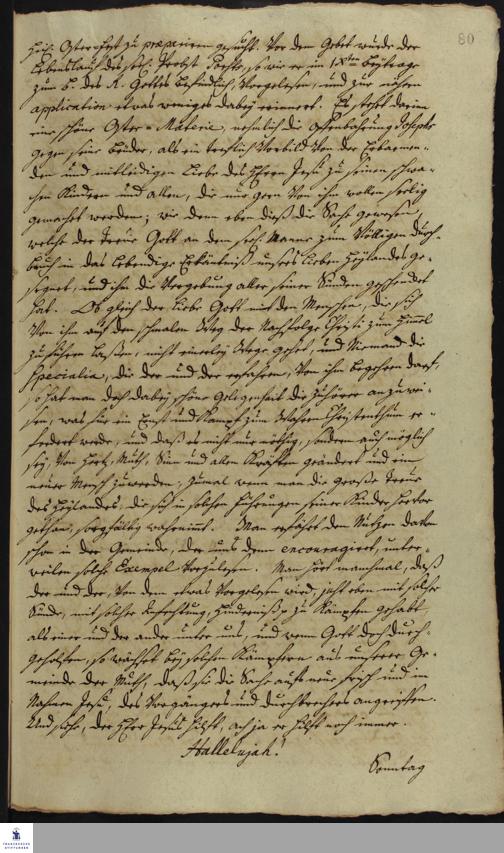 80
heil. Oster-Fest zu praepariren gesucht. Vor dem Gebet wurde der
Lebenslauf des sel. Probst Porsts, so wie er im IXten Beytrage
zum b. des R. Gottes befindlich, vorgelesen, und zur nähern
application etwas weniges dabey erinnert. Es steht darin
eine schöne Oster-Materie, nehmlich die Offenbahrung Josephs
gegen seine Brüder, als ein trefliches Vorbild von der Erbarmen-
den und mitleidigen Liebe des HErrn Jesu zu seinen schwa-
chen Kindern und allen, die nur gern von ihm wollen seelig
gemacht werden; wie denn eben dieß die Sache gewesen,
welche der Treue Gott an dem sel. Manne zum völligen Durch-
bruch in das lebendige Erkäntniß unsers lieben Heylandes ge-
segnet, und ihm die Vergebung aller seiner Sünden geschencket
hat. Ob gleich der liebe Gott mit den Menschen, die sich
von ihm auf dem schmalen Weg der Nachfolge Christi zum Himel
zu führen laßen, nicht einerley Wege gehet, und Niemand die
specialia, die der und der erfahren, von ihm begehren darf,
so hat man doch dabey schöne Gelegenheit die Zuhörer anzuwei-
sen, was für ein Ernst und Kampf zum wahren Christenthum er-
fordert werde, und daß es nicht nur nöthig, sondern auch möglich
sey, von Hertz, Muth, Sinn und allen Kräften geändert und ein
neuer Mensch zu werden; zumal wenn man die große Treue
des Heylandes, die sich in solchen Führungen seiner Kinder hervor
gethan, sorgfältig wahrnimt. Man erfährt den Nutzen davon
schon in der Gemeinde, der uns denn encouragiret, unter-
weilen solche Exempel vorzulesen. Man hört manchmal, daß
der und der, von dem etwas vorgelesen wird, just eben mit solcher
Sünde, mit solcher Anfechtung, Hinderniß p zu kämpfen gehabt,
als einer und der ander unter uns, und wenn Gott doch durch-
geholfen, so wächset bey solchen Kämpfern aus unserer Ge-
meinde der Muth, daß sie die Sache aufs neue frisch und im
Nahmen Jesu, des Vorgängers und Durchbrechers angreiffen.
Und siehe, der HErr Jesus hilft, ach ja er hilft noch immer.
Hallelujah!
Sonntag
FRANCKESCHE
STIFTUNGEN